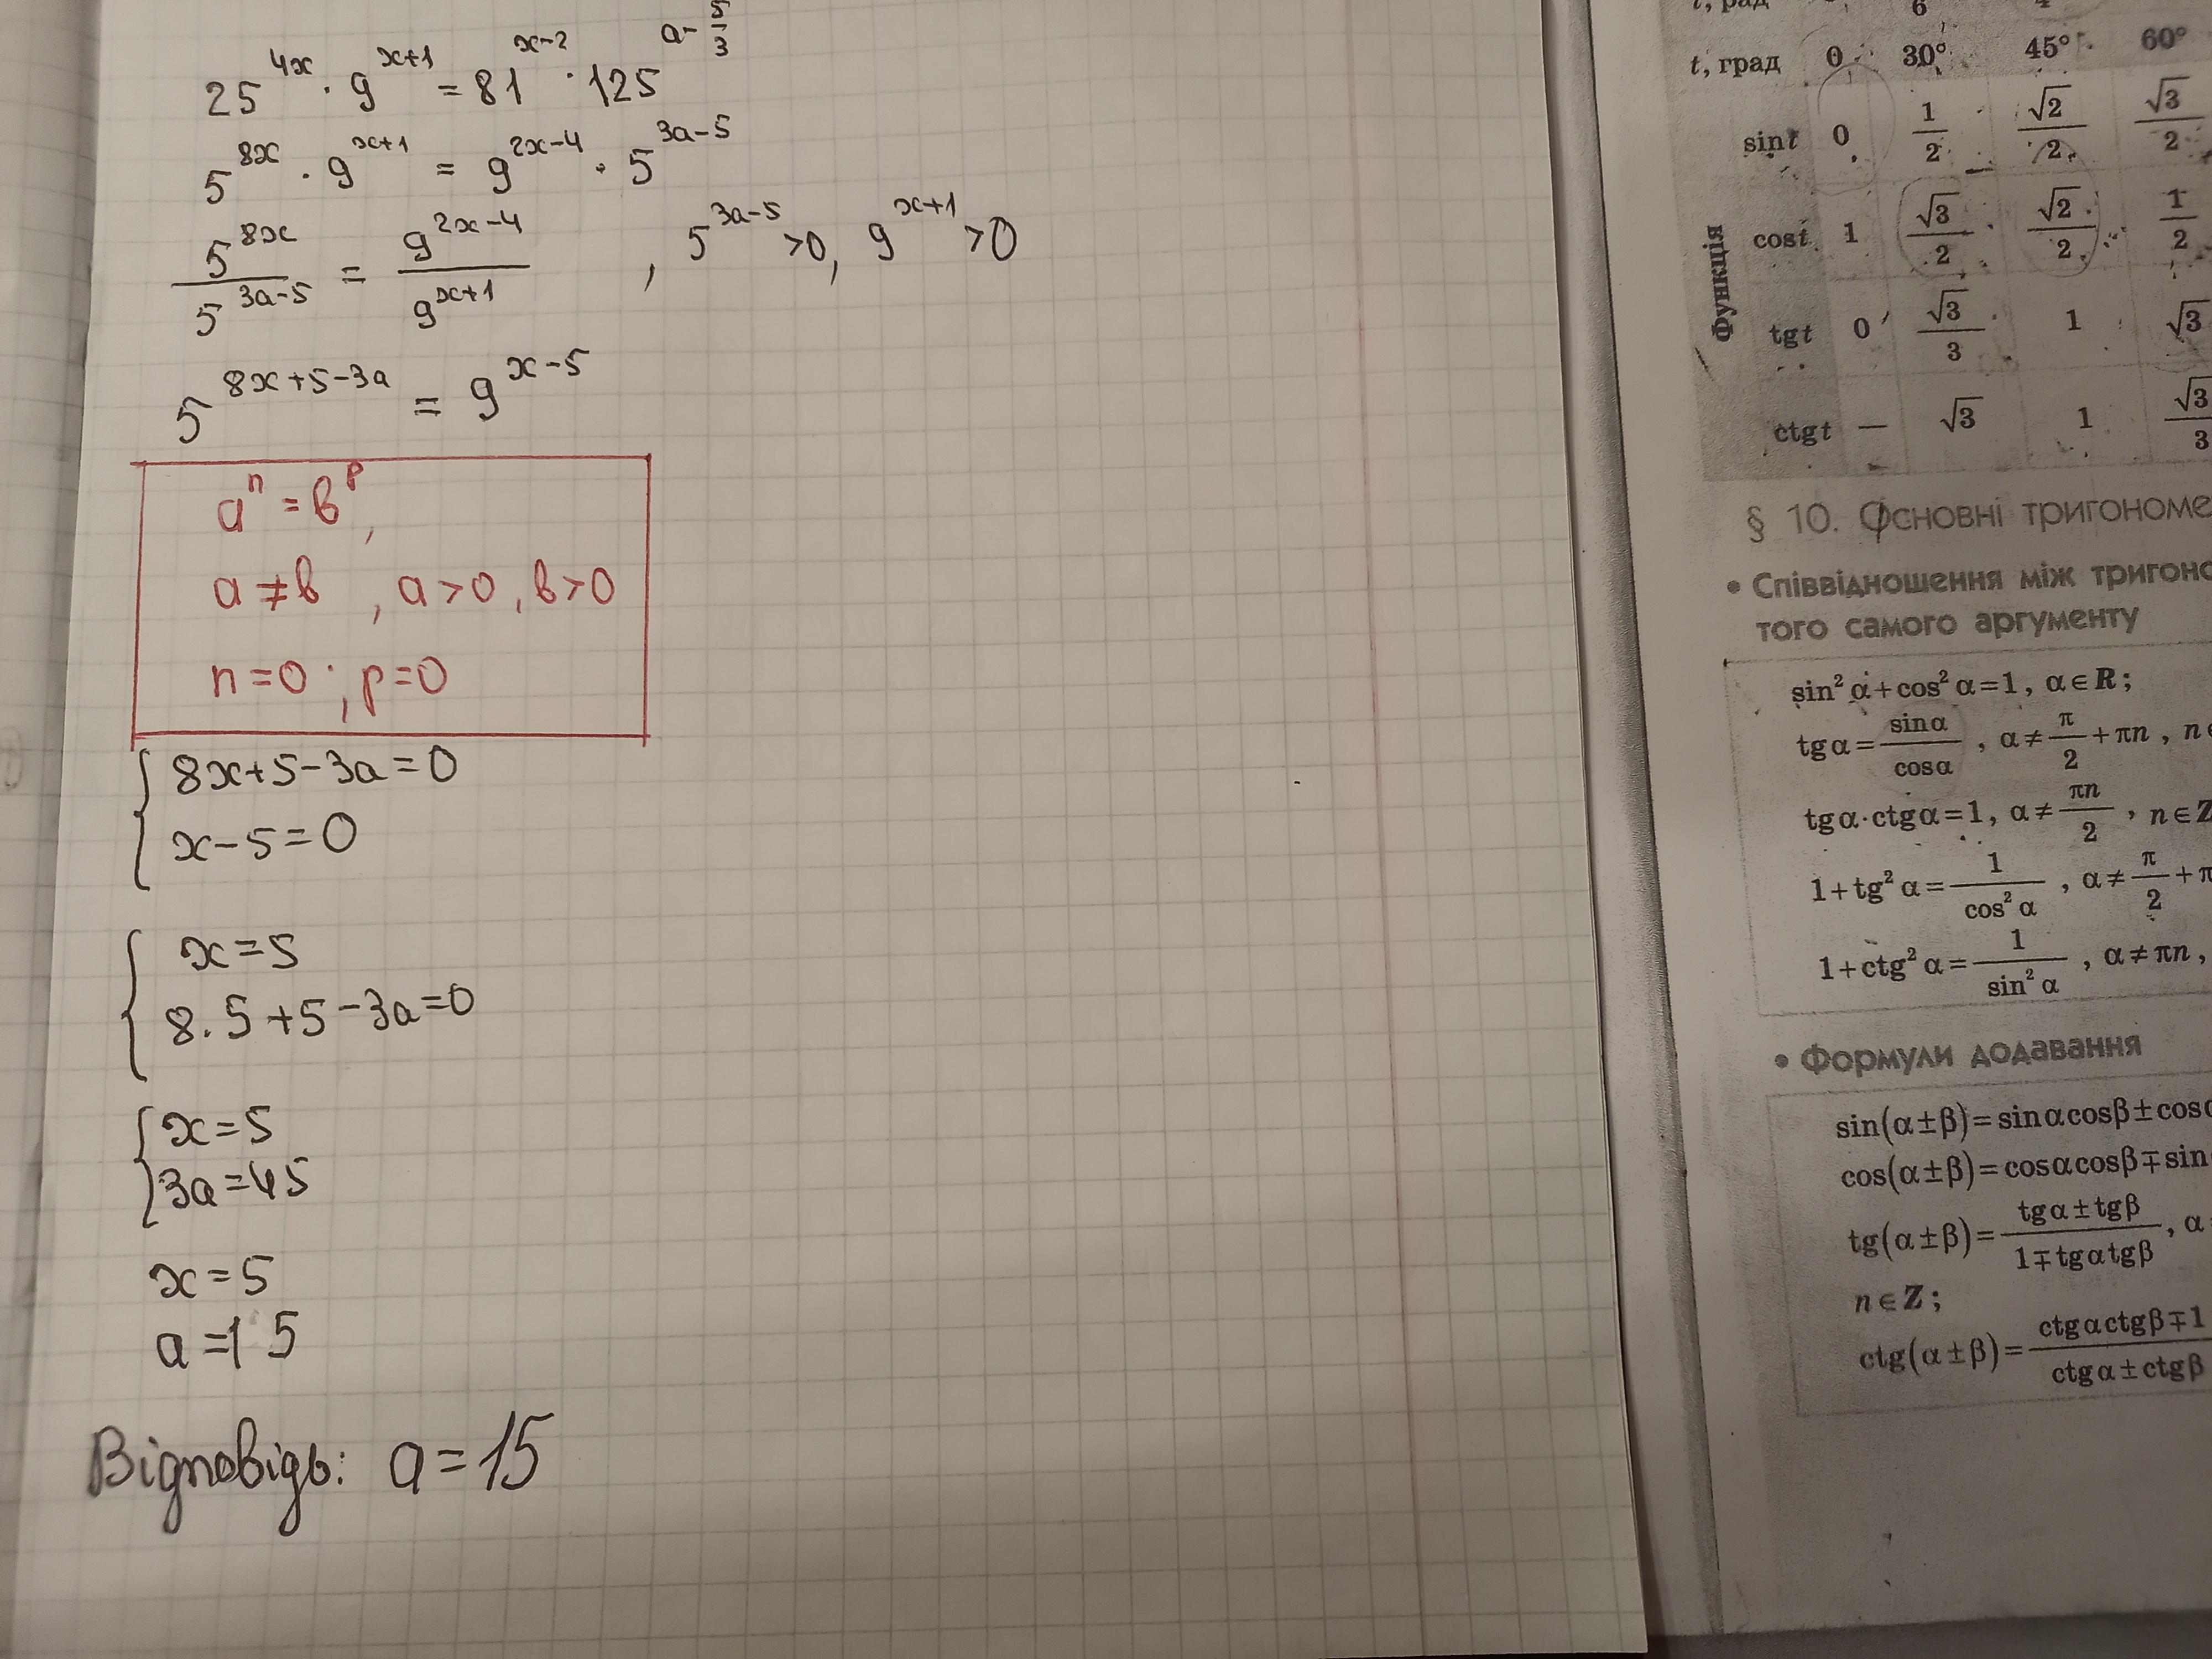 25^{4x} · 9^{x+1} = 81^{x-2} · 125^{a-\frac{5}{3}}
5^{8x} · 9^{x+1} = 9^{2x-4} · 5^{3a-5}
\frac{5^{8x}}{5^{3a-5}} = \frac{9^{2x-4}}{9^{x+1}} , 5^{3a-5} >0, 9^{x+1} >0
5^{8x+5-3a} = 9^{x-5}
a^n = в^p,
a ≠ в , a > 0, в > 0
n = 0 ; p = 0
8x+5-3a=0
x-5=0
x=5
8·5+5-3a=0
x=5
3a=45
x=5
a=15
Відповідь: a=15
t, рад 6 4
t, град 0 30° 45° 60°
Функція
sin t 0 \frac{1}{2} \frac{√2}{2} \frac{√3}{2}
cos t 1 \frac{√3}{2} \frac{√2}{2} \frac{1}{2}
tg t 0 \frac{√3}{3} 1 √3
ctg t — √3 1 \frac{√3}{3}
§ 10. Основні
• Співвідношення між
того самого аргументу
sin² α + cos² α = 1, α ∈ R;
tg α = \frac{sin α}{cos α}, α ≠ \frac{π}{2} + πn, n ∈
tg α · ctg α = 1, α ≠ \frac{πn}{2}, n ∈ Z
1 + tg² α = \frac{1}{cos² α}, α ≠ \frac{π}{2} +
1 + ctg² α = \frac{1}{sin² α}, α ≠ πn,
• Формули додавання
sin(α ± β) = sin α cos β ±
cos(α ± β) = cos α cos β ∓ sin
tg(α ± β) = \frac{tg α ± tg β}{1 ∓ tg α tg β}, α
n ∈ Z;
ctg(α ± β) = \frac{ctg α ctg β ∓ 1}{ctg α ± ctg β}